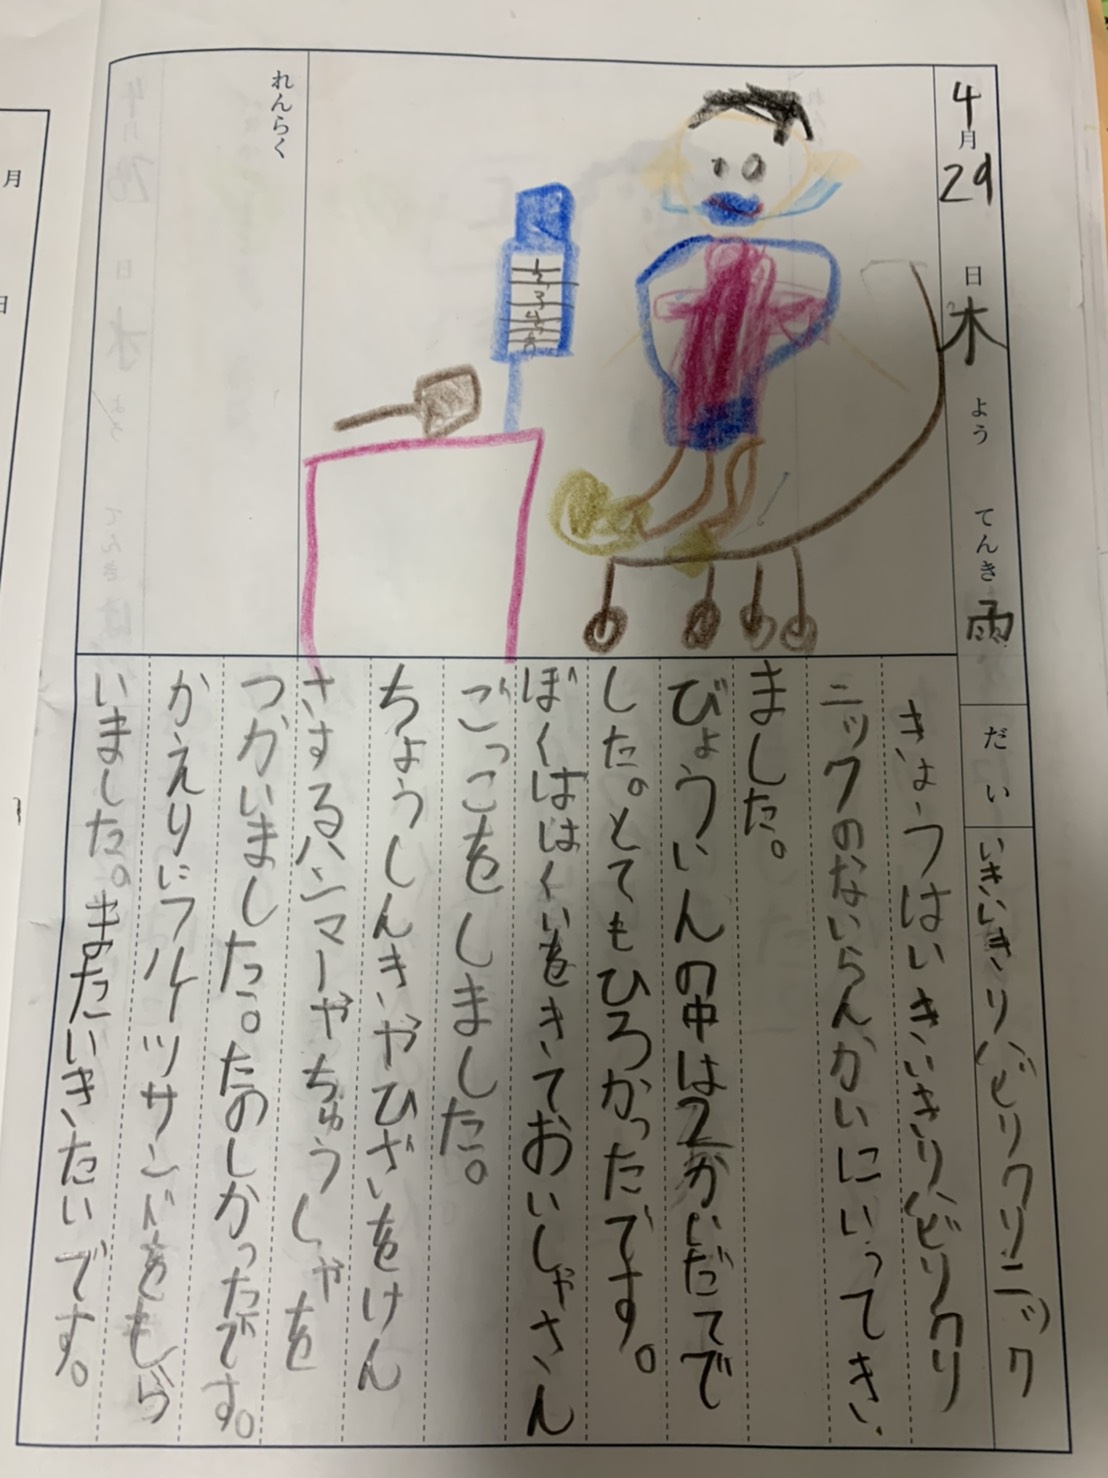 4月29日木ようてんき雨
だいいきいきリハビリクリニック
きょうはいきいきリハビリクリ
ニックのないらんかいにいってき
ました。
びょういんの中は2かいだてで
した。とてもひろかったです。
ぼくははくいをきておいしゃさん
ごっこをしました。
ちょうしんきやひざいをけん
さするハンマーやちゅうしゃを
つかいました。たのしかったです。
かえりにフルーツサンドをもら
いました。またいきたいです。
れんらく
月
日